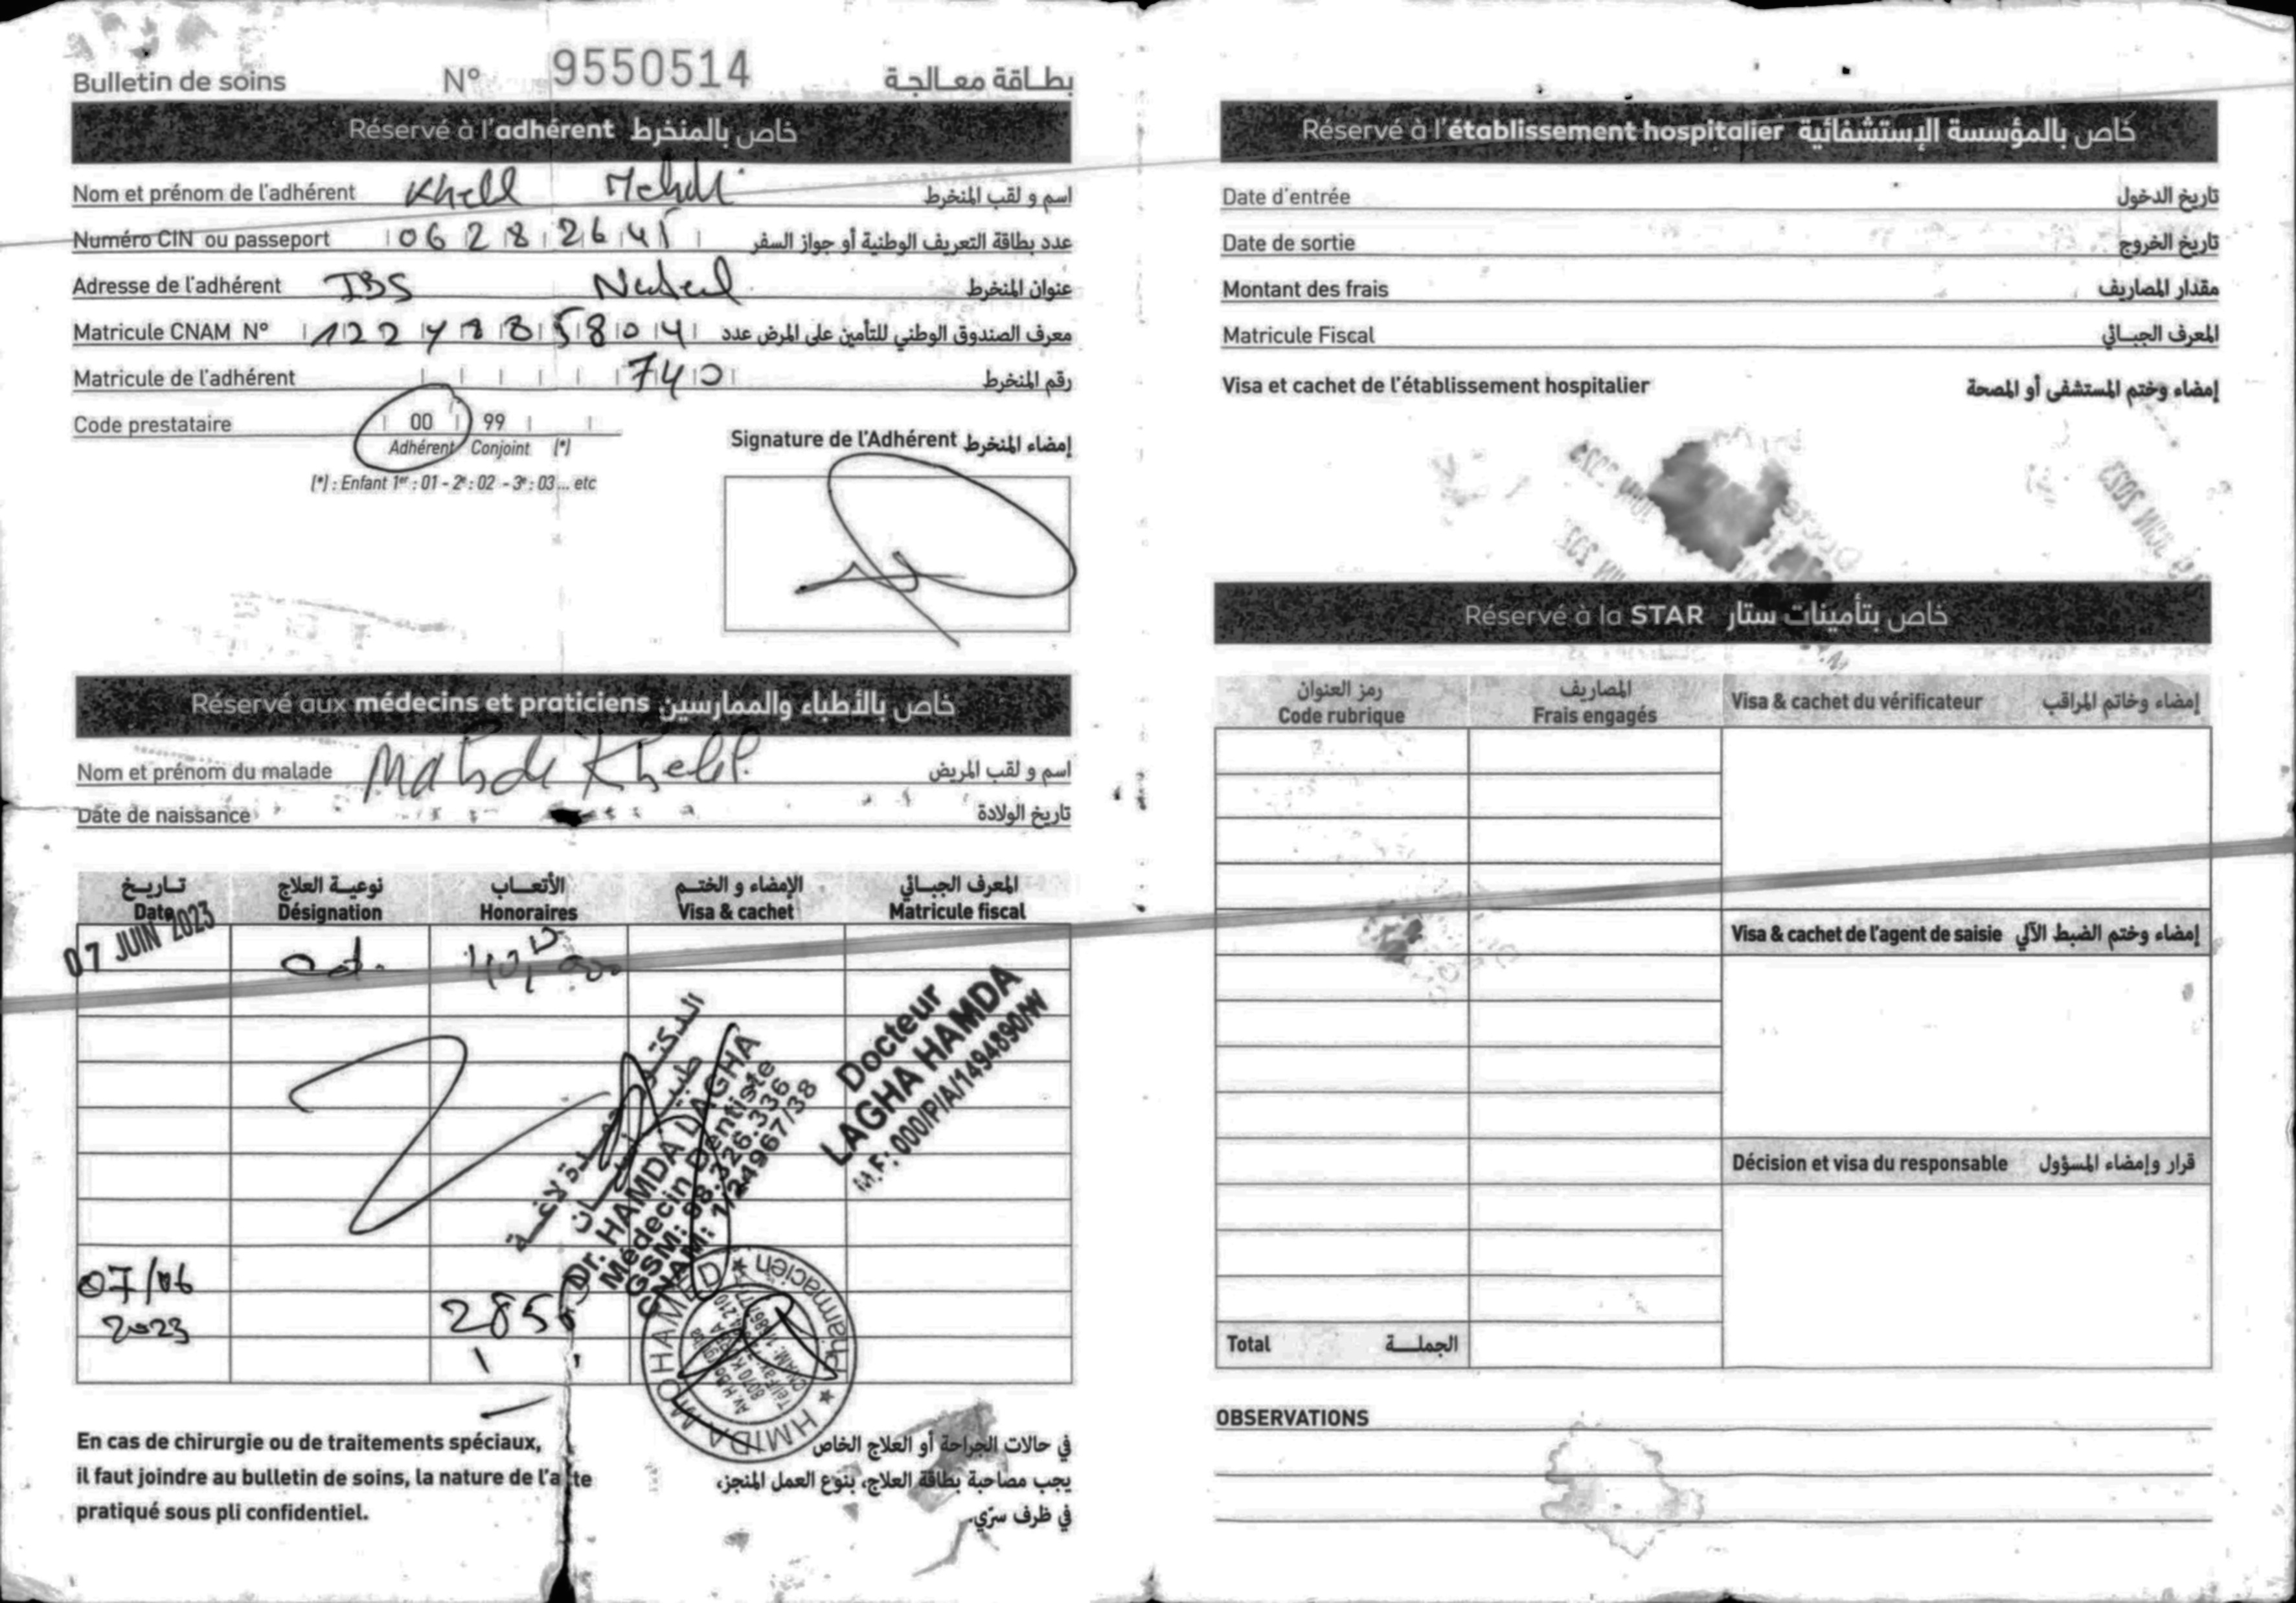 Bulletin de soins N° 9550514 بطاقة معالجة
Réservé à l'adhérent خاص بالمنخرط
Nom et prénom de l'adhérent Khelil Mehdi اسم و لقب المنخرط
Numéro CIN ou passeport 06282641 عدد بطاقة التعريف الوطنية أو جواز السفر
Adresse de l'adhérent IBS Nabeul عنوان المنخرط
Matricule CNAM N° معرف الصندوق الوطني للتأمين على المرض عدد
Matricule de l'adhérent 740 رقم المنخرط
Code prestataire 00 99
Adhérent Conjoint (*)
(*) : Enfant 1er : 01 - 2e : 02 - 3e : 03 ... etc
Signature de l'Adhérent إمضاء المنخرط
Réservé aux médecins et praticiens خاص بالأطباء والممارسين
Nom et prénom du malade Mahdi Khelil اسم و لقب المريض
Date de naissance تاريخ الولادة
تاريخ نوعية العلاج الأتعاب الإمضاء و الختم المعرف الجبائي
Date Désignation Honoraires Visa & cachet Matricule fiscal
07 JUIN 2023
الدكتور حمدة لاغة
طبيب أسنان
Dr. HAMDA LAGHA
Médecin Dentiste
GSM: 98.326.336
CNAM: 1/24967/38
Docteur
LAGHA HAMDA
M.F: 000/P/A/1494890/W
07/06
2023
285
HMIDA MOHAMED * Pharmacien *
En cas de chirurgie ou de traitements spéciaux,
il faut joindre au bulletin de soins, la nature de l'acte
pratiqué sous pli confidentiel.
في حالات الجراحة أو العلاج الخاص
يجب مصاحبة بطاقة العلاج، بنوع العمل المنجز،
في ظرف سرّي.
Réservé à l'établissement hospitalier خاص بالمؤسسة الإستشفائية
Date d'entrée تاريخ الدخول
Date de sortie تاريخ الخروج
Montant des frais مقدار المصاريف
Matricule Fiscal المعرف الجبائي
Visa et cachet de l'établissement hospitalier إمضاء وختم المستشفى أو المصحة
Réservé à la STAR خاص بتأمينات ستار
رمز العنوان المصاريف
Code rubrique Frais engagés Visa & cachet du vérificateur إمضاء وخاتم المراقب
Visa & cachet de l'agent de saisie إمضاء وختم الضبط الآلي
Décision et visa du responsable قرار وإمضاء المسؤول
Total الجملة
OBSERVATIONS